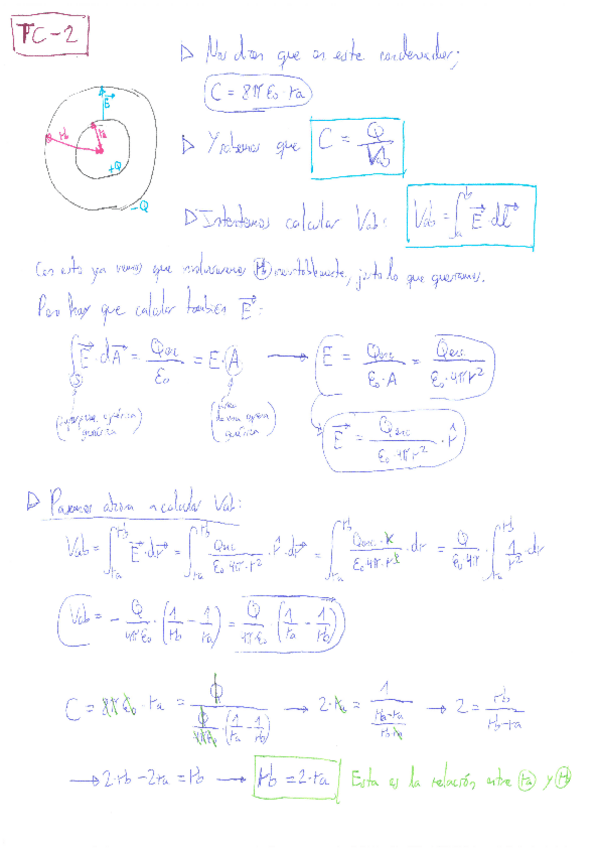 TC-2
▷ Nos dicen que en este condensador;
C = 8πε₀·ra
▷ Y sabemos que C = Q/Vab
E→
rb
ra
+Q
-Q
▷ Intentemos calcular Vab: Vab = ∫ₐᵇ E→·dl→
Con esto ya vemos que involucramos rb inevitablemente, justo lo que queríamos.
Pero hay que calcular también E→:
∫ₛ E→·dA→ = Qenc/ε₀ = E·A → E = Qenc/(ε₀·A) = Qenc/(ε₀·4πr²)
(superficie esférica genérica)
(área de una esfera genérica)
E→ = Qenc/(ε₀·4πr²)·r̂
▷ Pasemos ahora a calcular Vab:
Vab = ∫ᵣₐʳᵇ E→·dr→ = ∫ᵣₐʳᵇ Qenc/(ε₀4π·r²)·r̂·dr→ = ∫ᵣₐʳᵇ Qenc·r/(ε₀4π·r³)·dr = Q/(ε₀4π)·∫ᵣₐʳᵇ 1/r²·dr
Vab = -Q/(4πε₀)·(1/rb - 1/ra) = Q/(4πε₀)·(1/ra - 1/rb)
C = 8πε₀·ra = Q/(Q/(4πε₀)·(1/ra - 1/rb)) → 2·ra = 1/((rb-ra)/(rb·ra)) → 2 = rb/(rb-ra)
→ 2·rb - 2ra = rb → rb = 2·ra Esta es la relación entre ra y rb